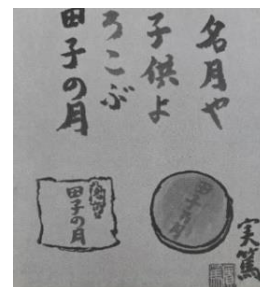 名月や
子供よ
ろこぶ
田子の月
実篤
田子の月
田子の月